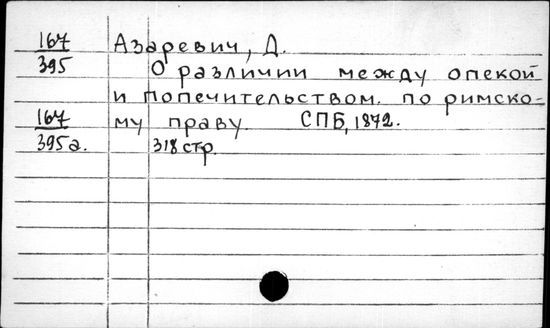 167 Азаревич, Д.
395 О различии между опекой
и попечительством. по римско-
167 му праву. СПБ, 1872.
395а. 318 стр.